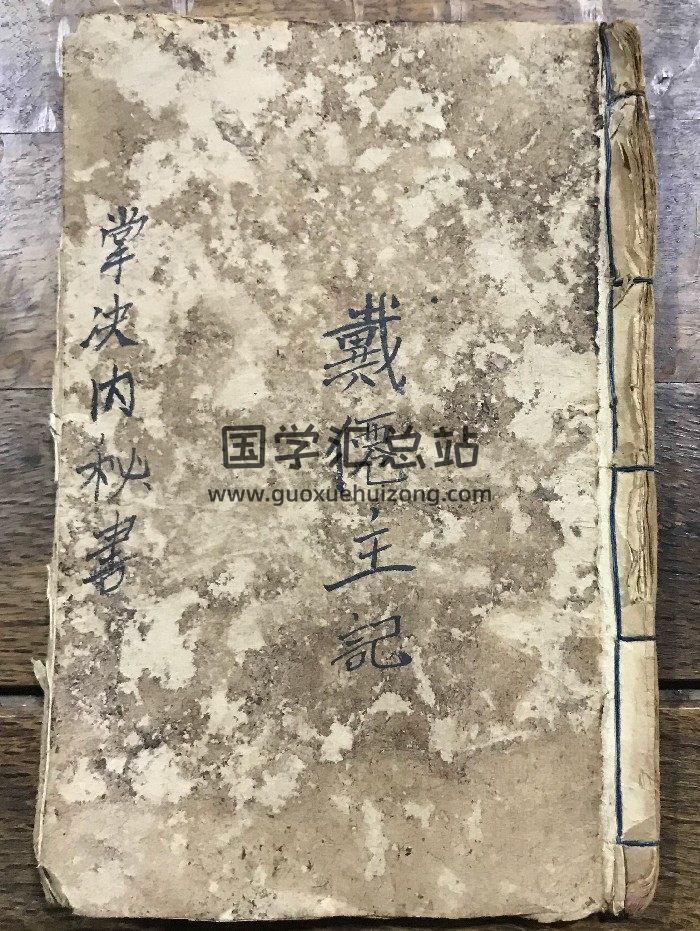 戴主記
掌决内秘書
国学汇总站
www.guoxuehuizong.com